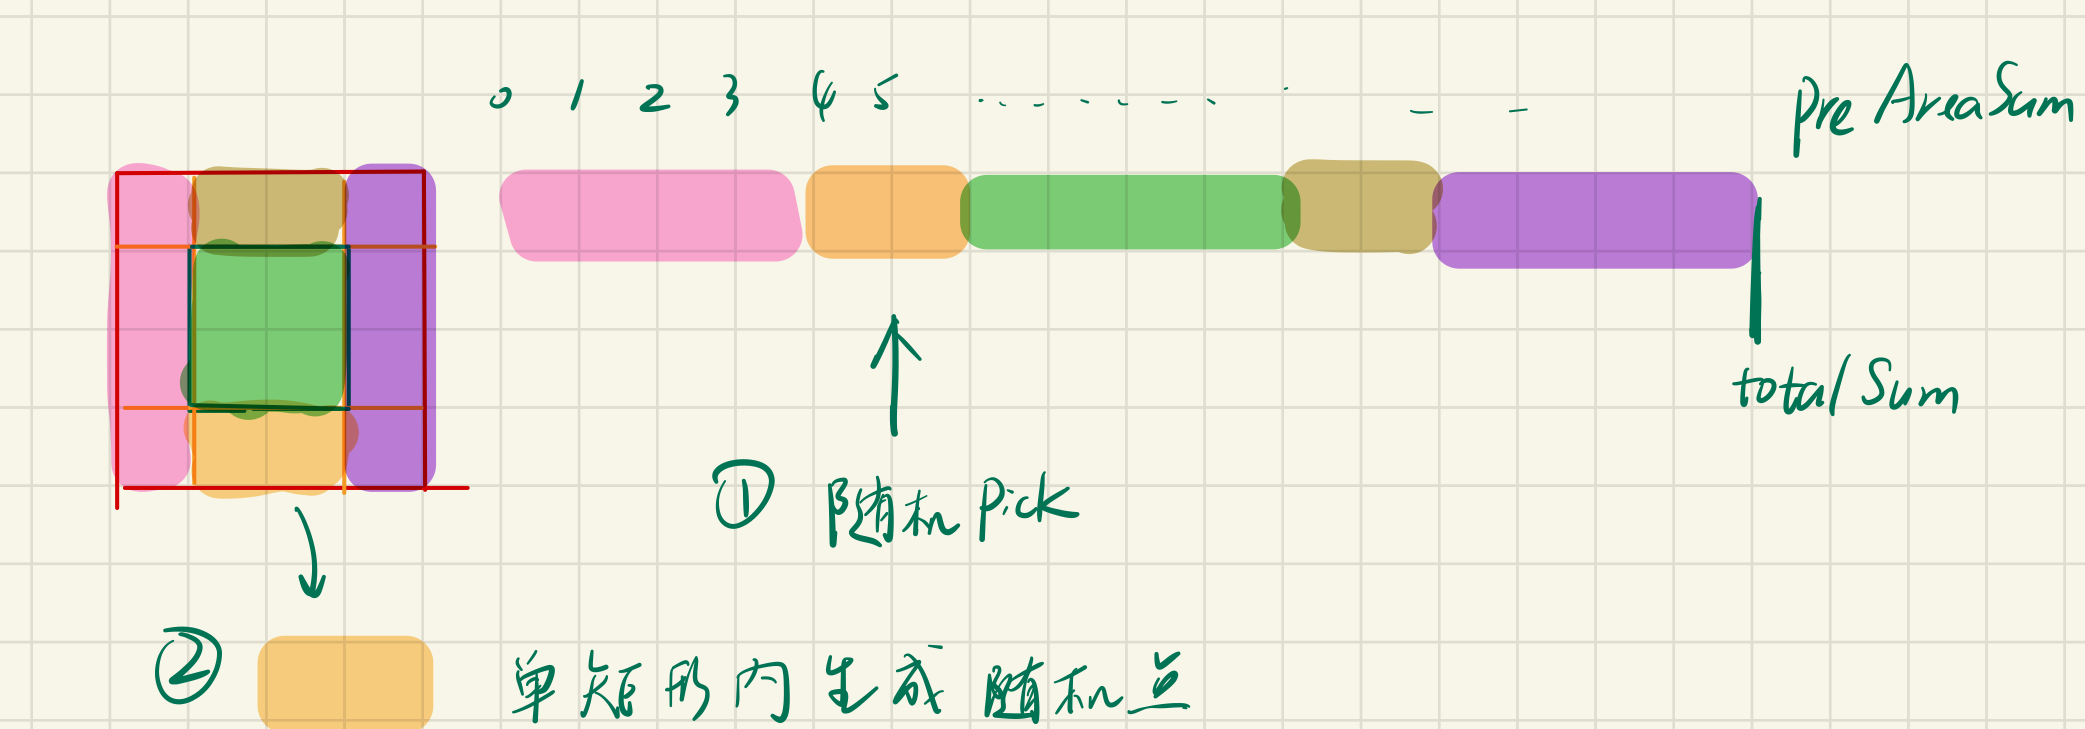 0 1 2 3 4 5
pre AreaSum
totalSum
① 随机 pick
② 单矩形内生成随机点